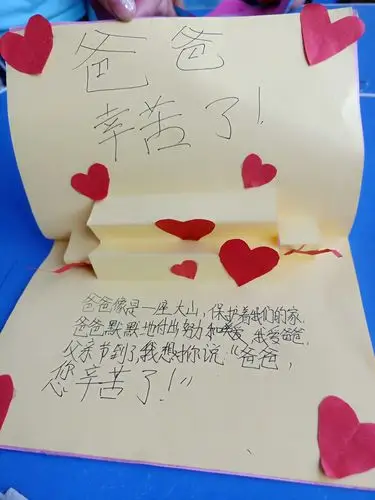 爸爸
辛苦了!
爸爸像是一座大山,保护着我们的家.
爸爸默默地付出努力和关爱,我爱爸爸,
父亲节到了,我想对你说“爸爸,
您辛苦了!”